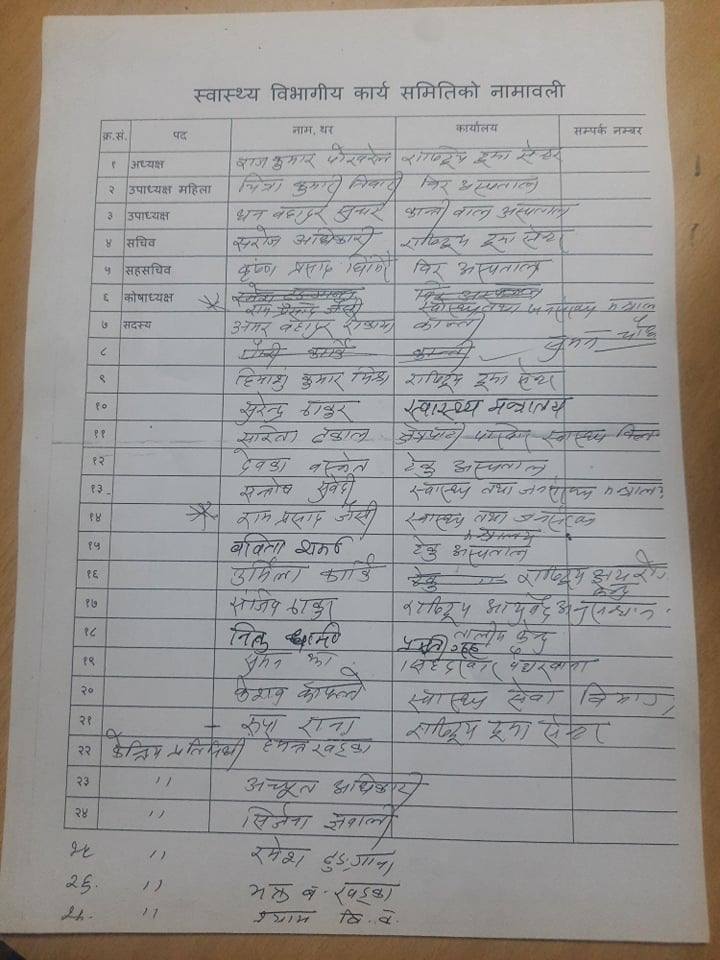 स्वास्थ्य विभागीय कार्य समितिको नामावली
क्र.सं. पद नाम, थर कार्यालय सम्पर्क नम्बर
१ अध्यक्ष राजकुमार पोखरेल राष्ट्रिय ट्रमा सेन्टर
२ उपाध्यक्ष महिला चित्रा कुमारी तिवारी विर अस्पताल
३ उपाध्यक्ष धन बहादुर सुनार कान्ती बाल अस्पताल
४ सचिव सरोज अधिकारी राष्ट्रिय ट्रमा सेन्टर
५ सहसचिव कृष्ण प्रसाद घिमिरे विर अस्पताल
६ कोषाध्यक्ष
राम प्रसाद जैसी स्वास्थ्य तथा जनसंख्या मन्त्रालय
७ सदस्य अमर बहादुर कान्ती
८ कार्की कान्ती
९ हिमाशु कुमार मिश्र राष्ट्रिय ट्रमा सेन्टर
१० सुरेन्द्र ठाकुर स्वास्थ्य मन्त्रालय
११ सरिता ढकाल स्वास्थ्य
१२ देवका बस्नेत टेकु अस्पताल
१३ सन्तोष सुवेदी स्वास्थ्य तथा जनसंख्या
१४ राम प्रसाद जैसी स्वास्थ्य तथा जनसंख्या
मन्त्रालय
१५ बविता शर्मा टेकु अस्पताल
१६ उर्मिला कार्की टेकु राष्ट्रिय क्षय रोग
केन्द्र
१७ संजिव ठाकुर राष्ट्रिय आयुर्वेद अनुसन्धान
तालीम केन्द्र
१८
१९ सुमन झा सिंहदरवार वैद्यखाना
२० केशव काफ्ले स्वास्थ्य सेवा विभाग
२१ रुपा राना राष्ट्रिय ट्रमा सेन्टर
२२ केन्द्रिय प्रतिनिधी हेमन्त खड्का
२३ " अच्यूत अधिकारी
२४ " सिर्जना ज्ञवाली
२५ " रमेश ढुङ्गाना
२६. " भक्त ब. खड्का
" श्याम बि. क.